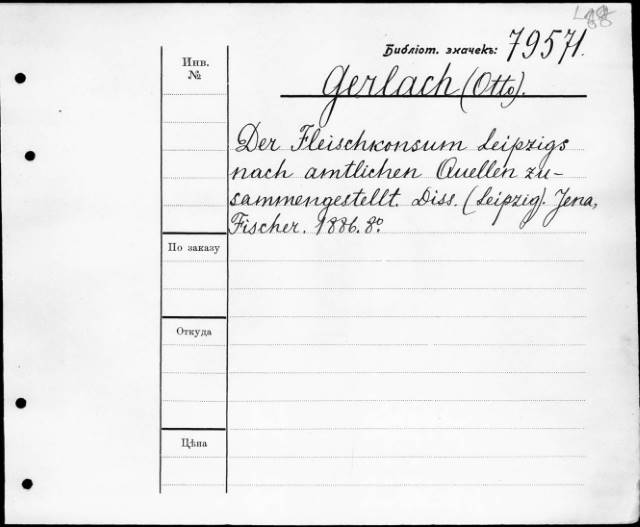 Библіот. значекъ: 79571.
Инв.
№
Gerlach (Otto).
Der Fleischkonsum Leipzigs
nach amtlichen Quellen zu-
sammengestellt. Diss. (Leipzig). Jena,
Fischer. 1886. 8°.
По заказу
Откуда
Цѣна